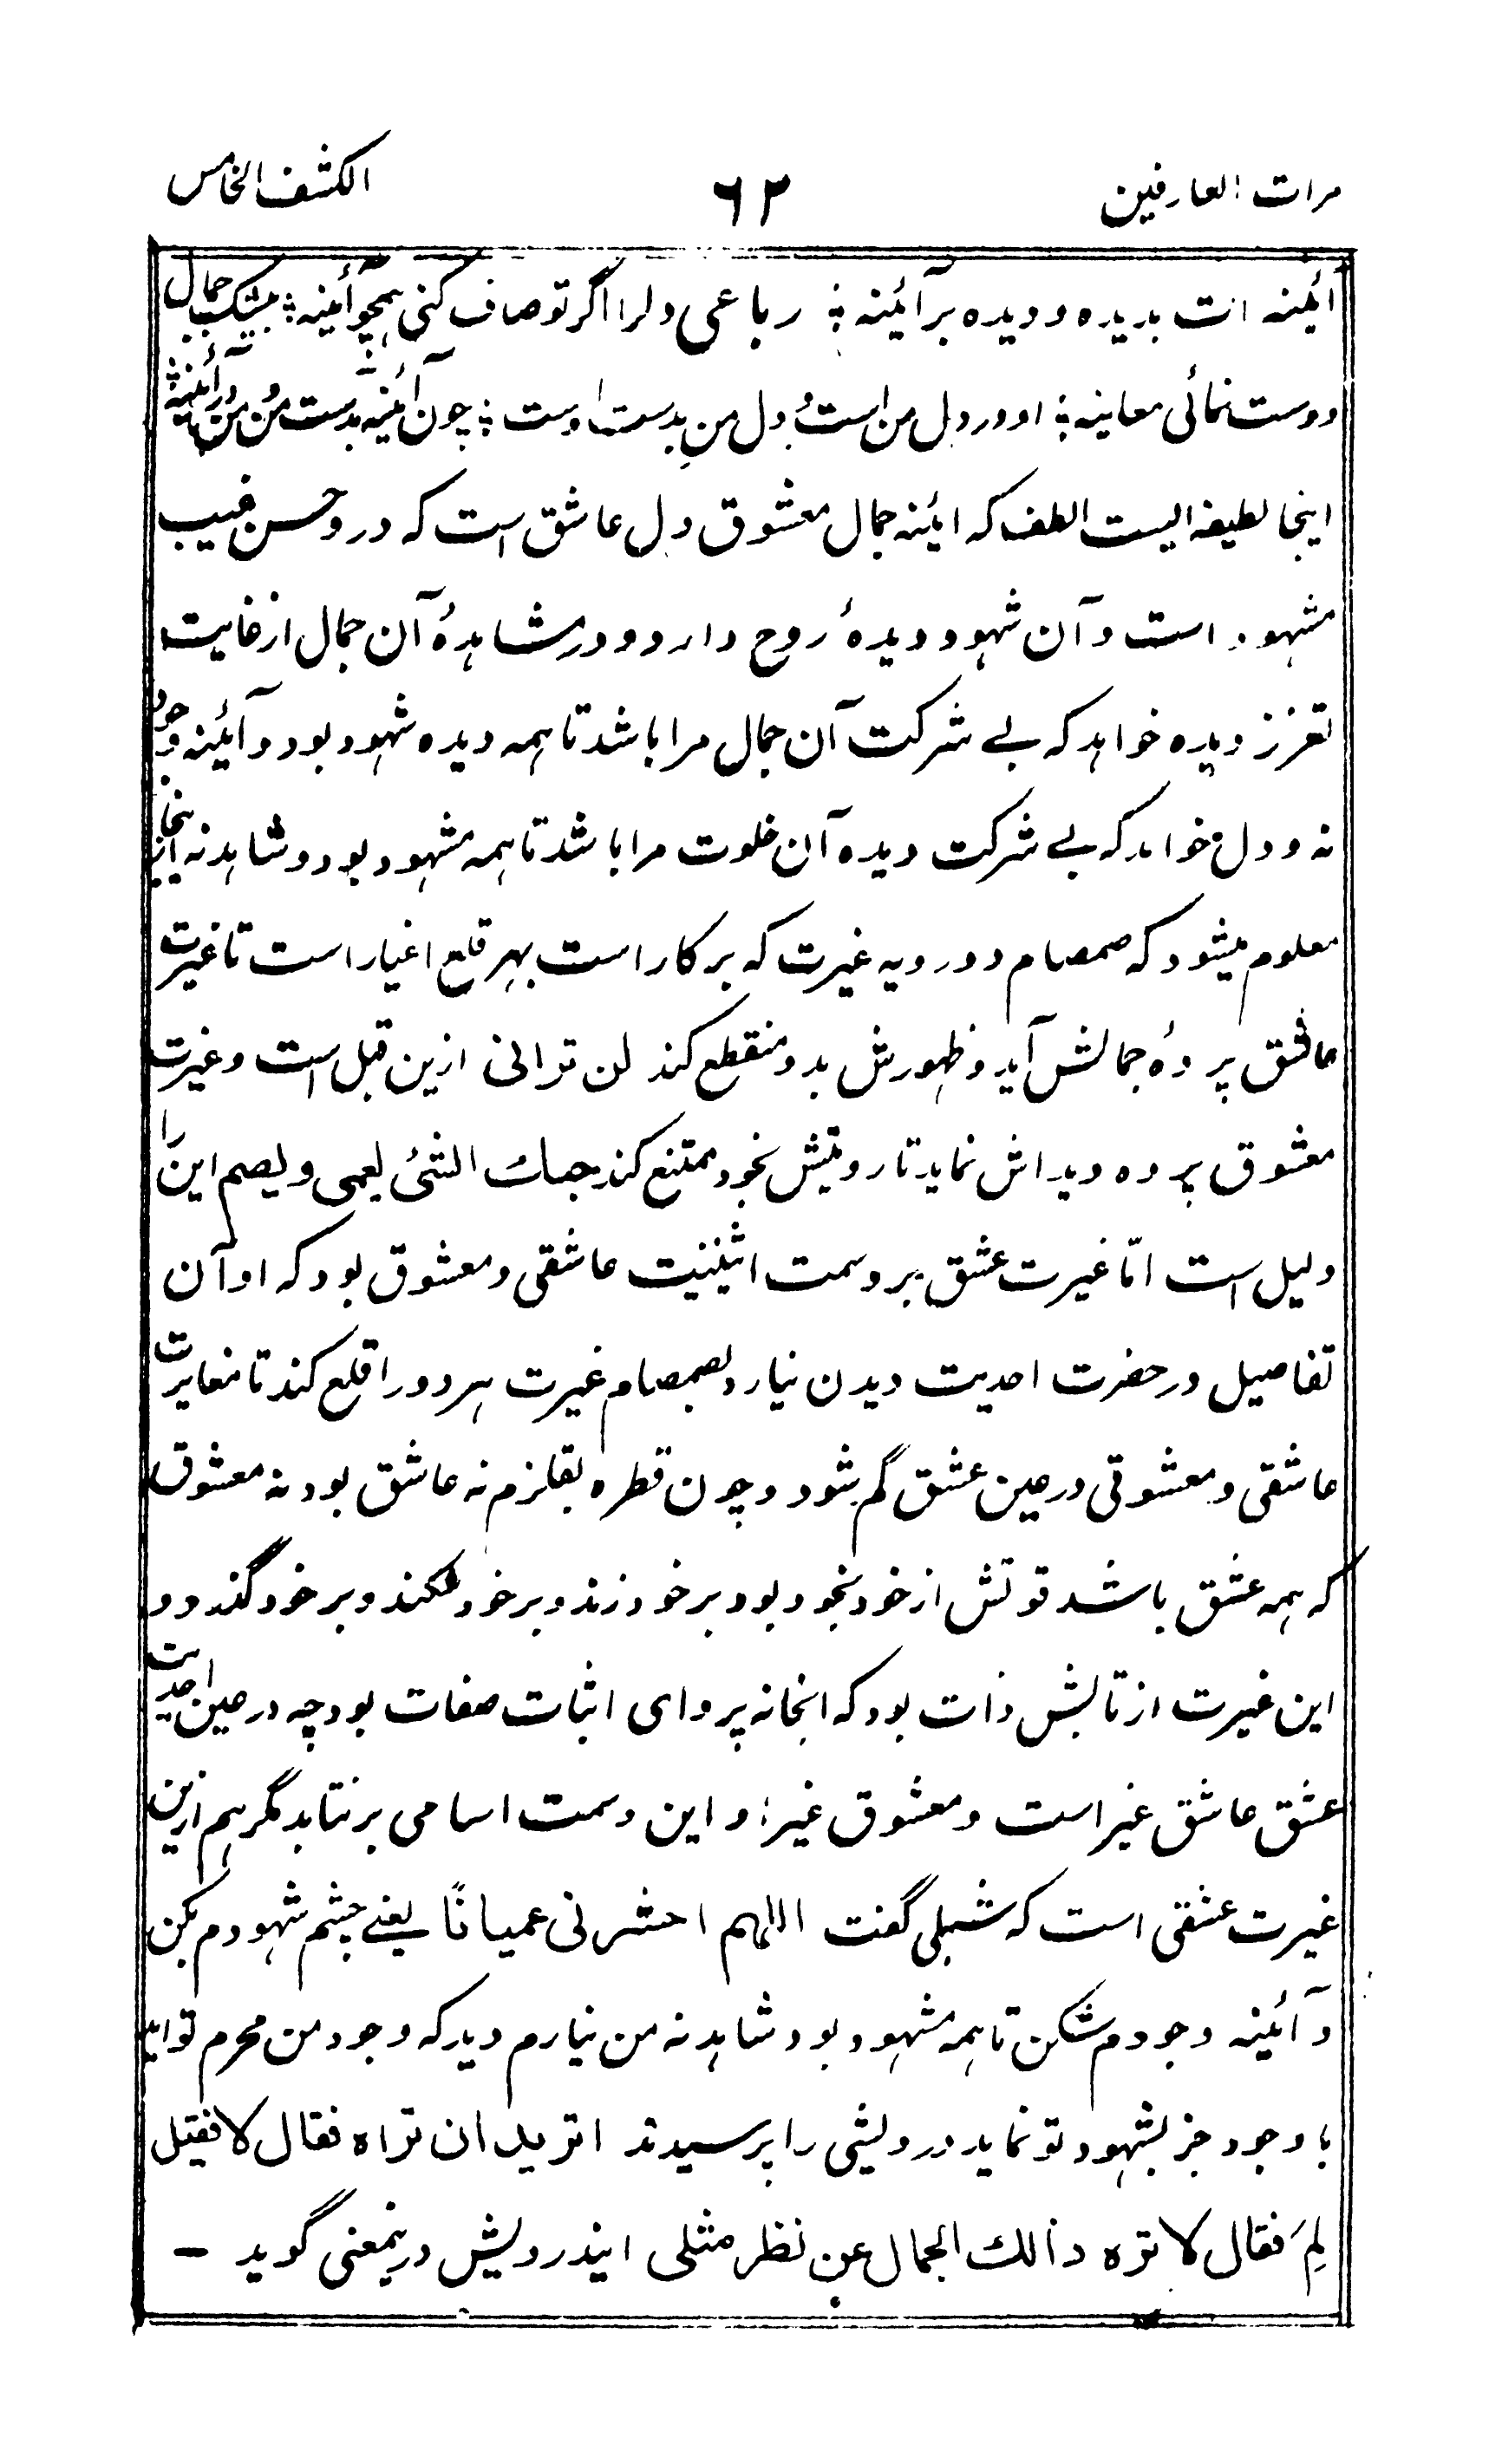 مرات العارفین ٦٢ الکشف الخامس
آئینه ات بدیده و دیده بر آئینه ؛ رباعی دلرا اگر تو صاف کنی همچو آئینه ؛ بیشک جمال
دوست نمائی معاینه ؛ او در دل من است و دل من بدست اوست ؛ چون آئینه بدست من و من در آئینه ؛
اینجا لطیفه ایست الطف که ائینه جمال معشوق دل عاشق است که درو حسن غیب
مشهود است و آن شهود دیدهٔ روح دارد و در مشاهدهٔ آن جمال از غایت
تعزز دیده خواهد که بے شرکت آن جمال مرا باشد تا همه دیده شهود بود و آئینه وجود
نه و دل خواهد که بے شرکت دیده آن خلوت مرا باشد تا همه مشهود بود و شاهد نه اینجا
معلوم میشود که صمصام دو رویه غیرت که بر کار است بهر قلع اغیار است تا غیرت
عاشق پردهٔ جمالش آید و ظهورش بدو منقطع کند لن ترانی ازین قبل است و غیرت
معشوق پرده دیداش نماید تا رویتش بخود ممتنع کند حبك الشئ یعمی و یصم این را
دلیل است امّا غیرت عشق بر وسمت اثنینیت عاشقی و معشوق بود که او آن
تفاصیل در حضرت احدیت دیدن نیارد بصمصام غیرت هر دو را قلع کند تا مغایرت
عاشقی و معشوقی در عین عشق گم شود و چون قطره بقلزم نه عاشق بود نه معشوق
که همه عشق باشد قوتش از خود بخود بود بر خود زند و بر خود فکند و بر خود گذرد و
این غیرت از تابش ذات بود که انجا نه پروای اثبات صفات بود چه در عین احدیت
عشق عاشق غیر است و معشوق غیر و این وسمت اسامی برنتابد مگر هم ازین
غیرت عشقی است که شبلی گفت اللهم احشرنی عمیاناً یعنے چشم شهودم بکن
و آئینه وجودم شکن تا همه مشهود بود شاهد نه من نیارم دید که وجود من محرم تو آید
با وجود جز بشهود تو نماید درویشی را پرسیدند اترید ان تراه فقال لا فقیل
لِمَ فقال لا نزه ذالك الجمال عن نظر مثلی ایندرویش درینمعنی گوید –